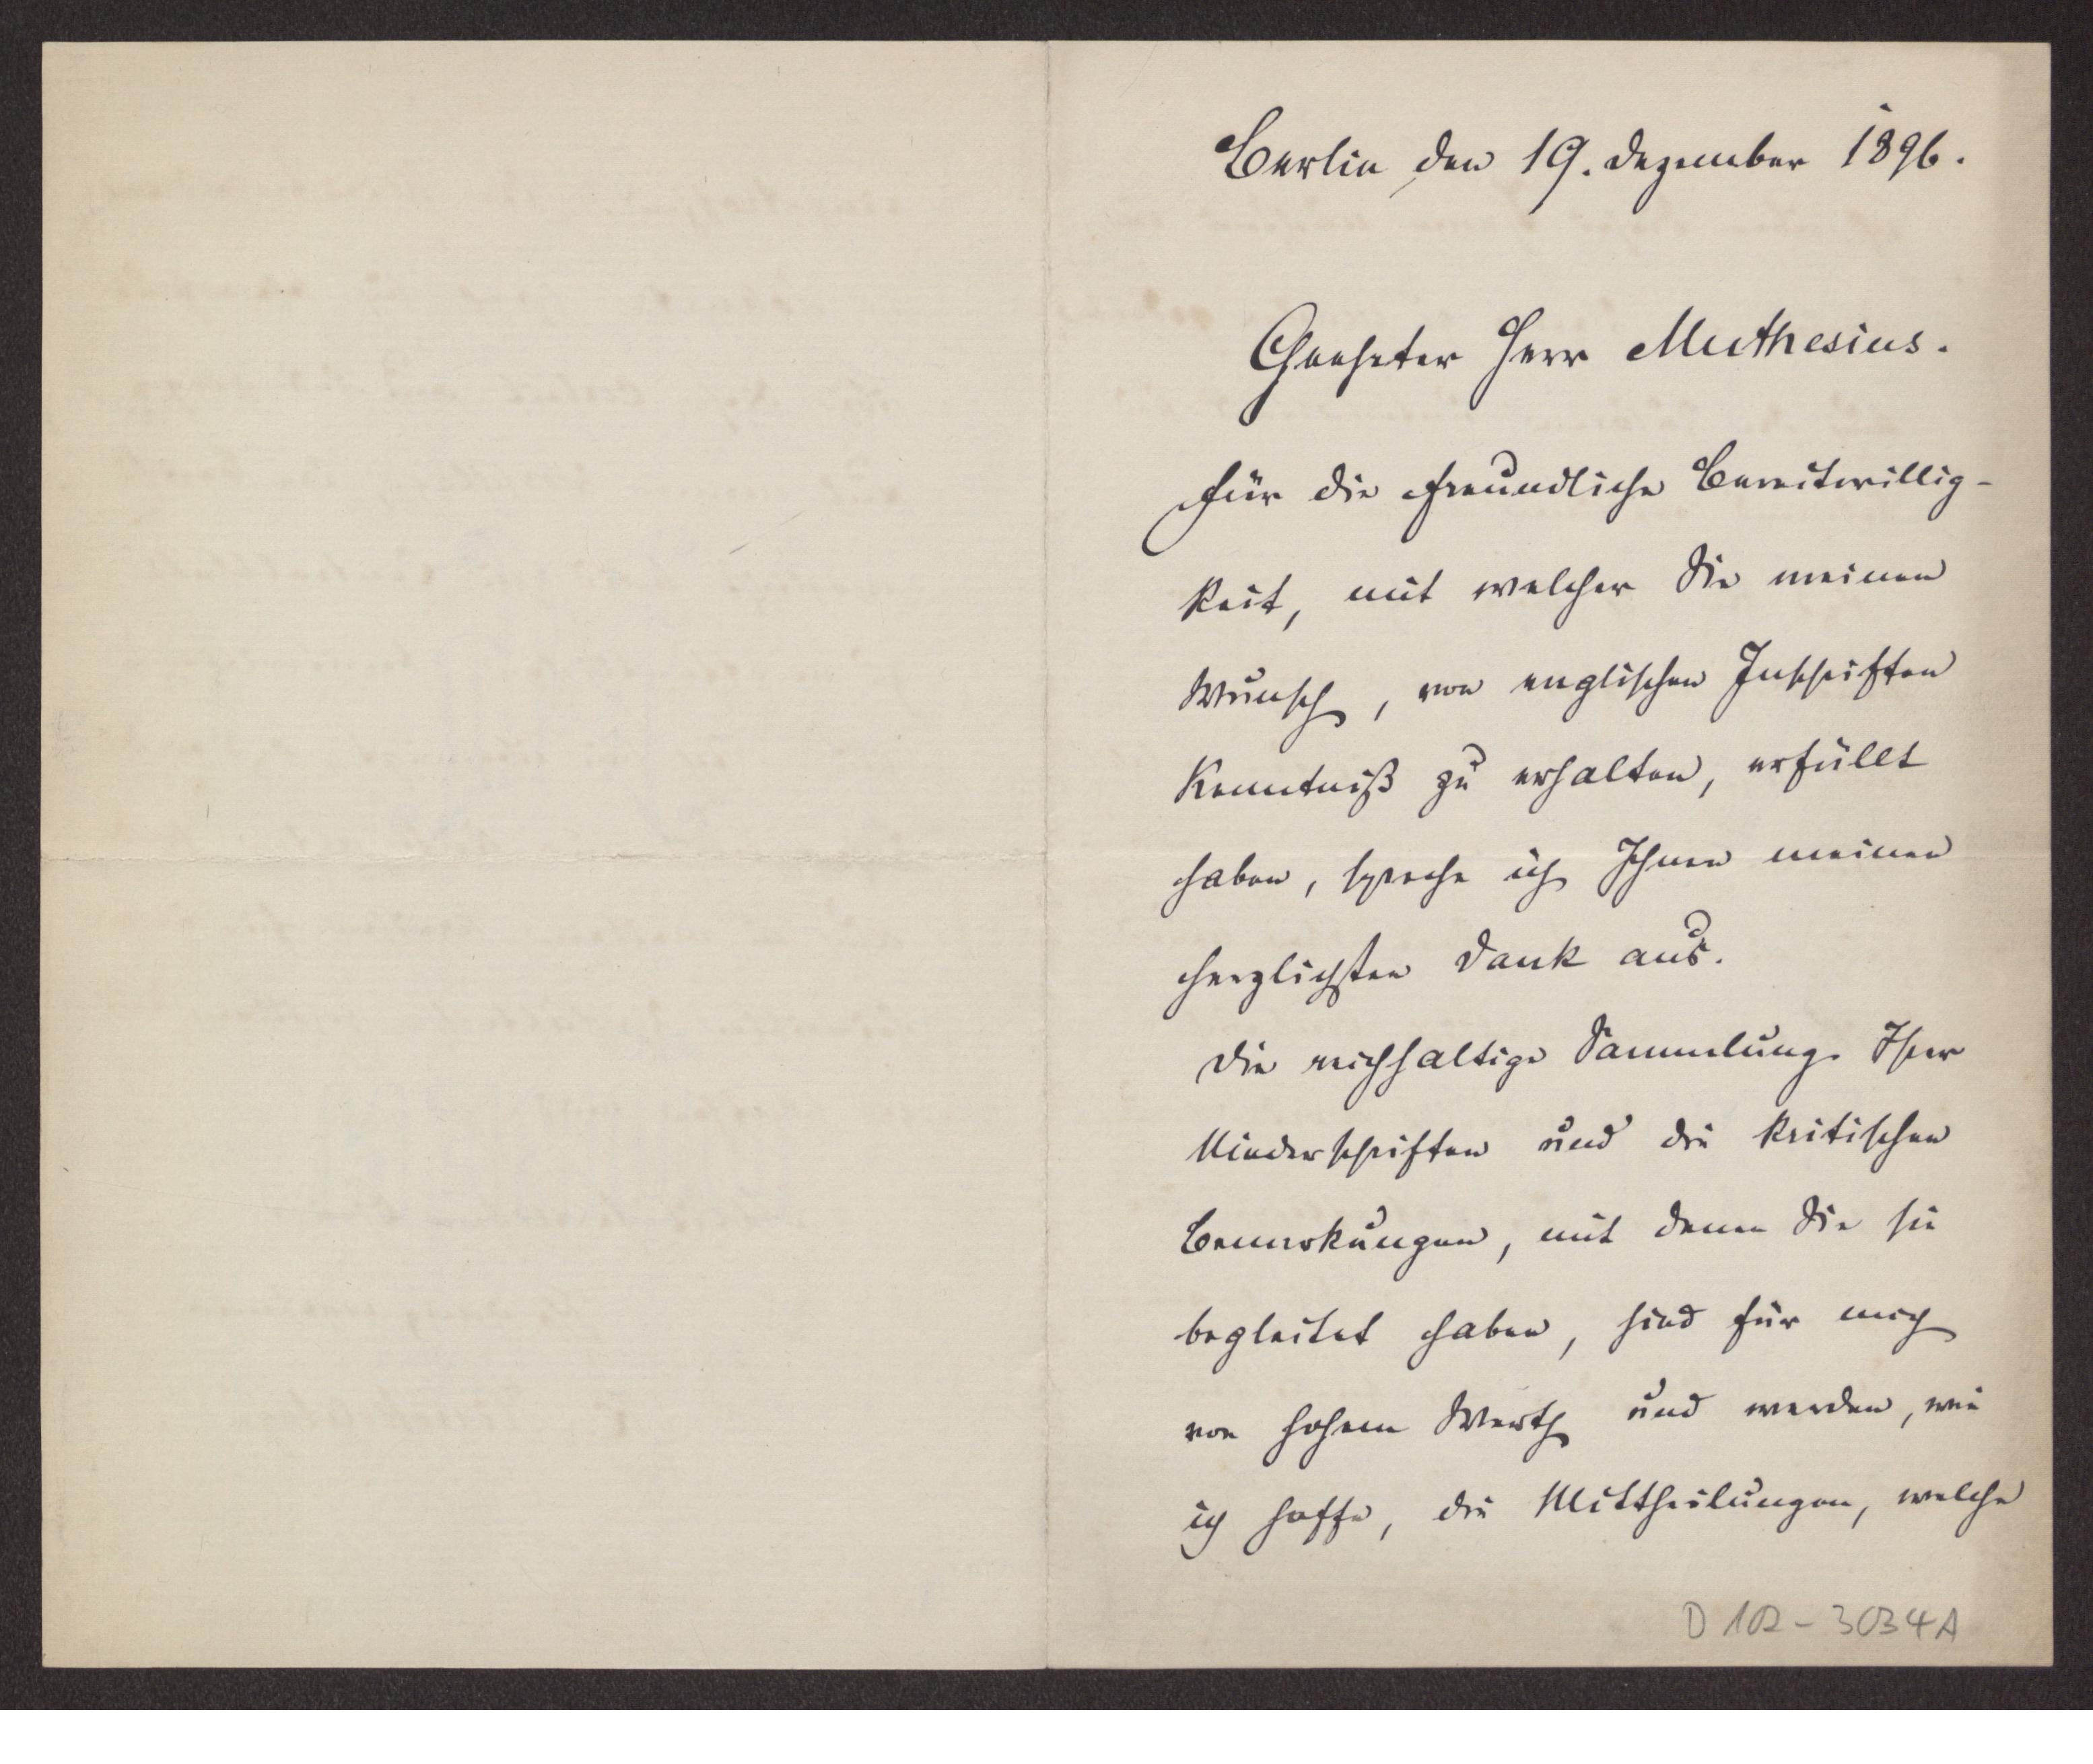 Berlin den 19. Dezember 1896.
Geehrter Herr Muthesius.
Für die freundliche Bereitwillig-
keit, mit welcher Sie meinen
Wunsch, von englischen Inschriften
Kenntniß zu erhalten, erfüllt
haben, spreche ich Ihnen meinen
herzlichsten Dank aus.
Die reichhaltige Sammlung Ihrer
Niederschriften und die kritischen
Bemerkungen, mit denen Sie sie
begleitet haben, sind für mich
von hohem Werth und werden, wie
ich hoffe, die Mittheilungen, welche
D 102-3034A